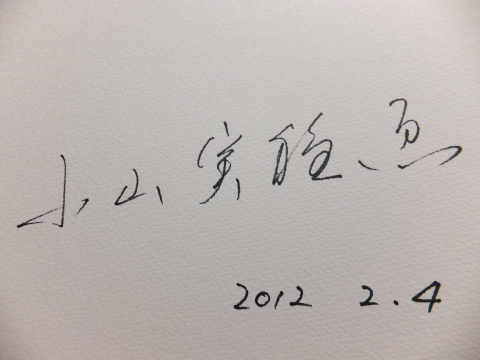 小山実稚恵
2012 2.4